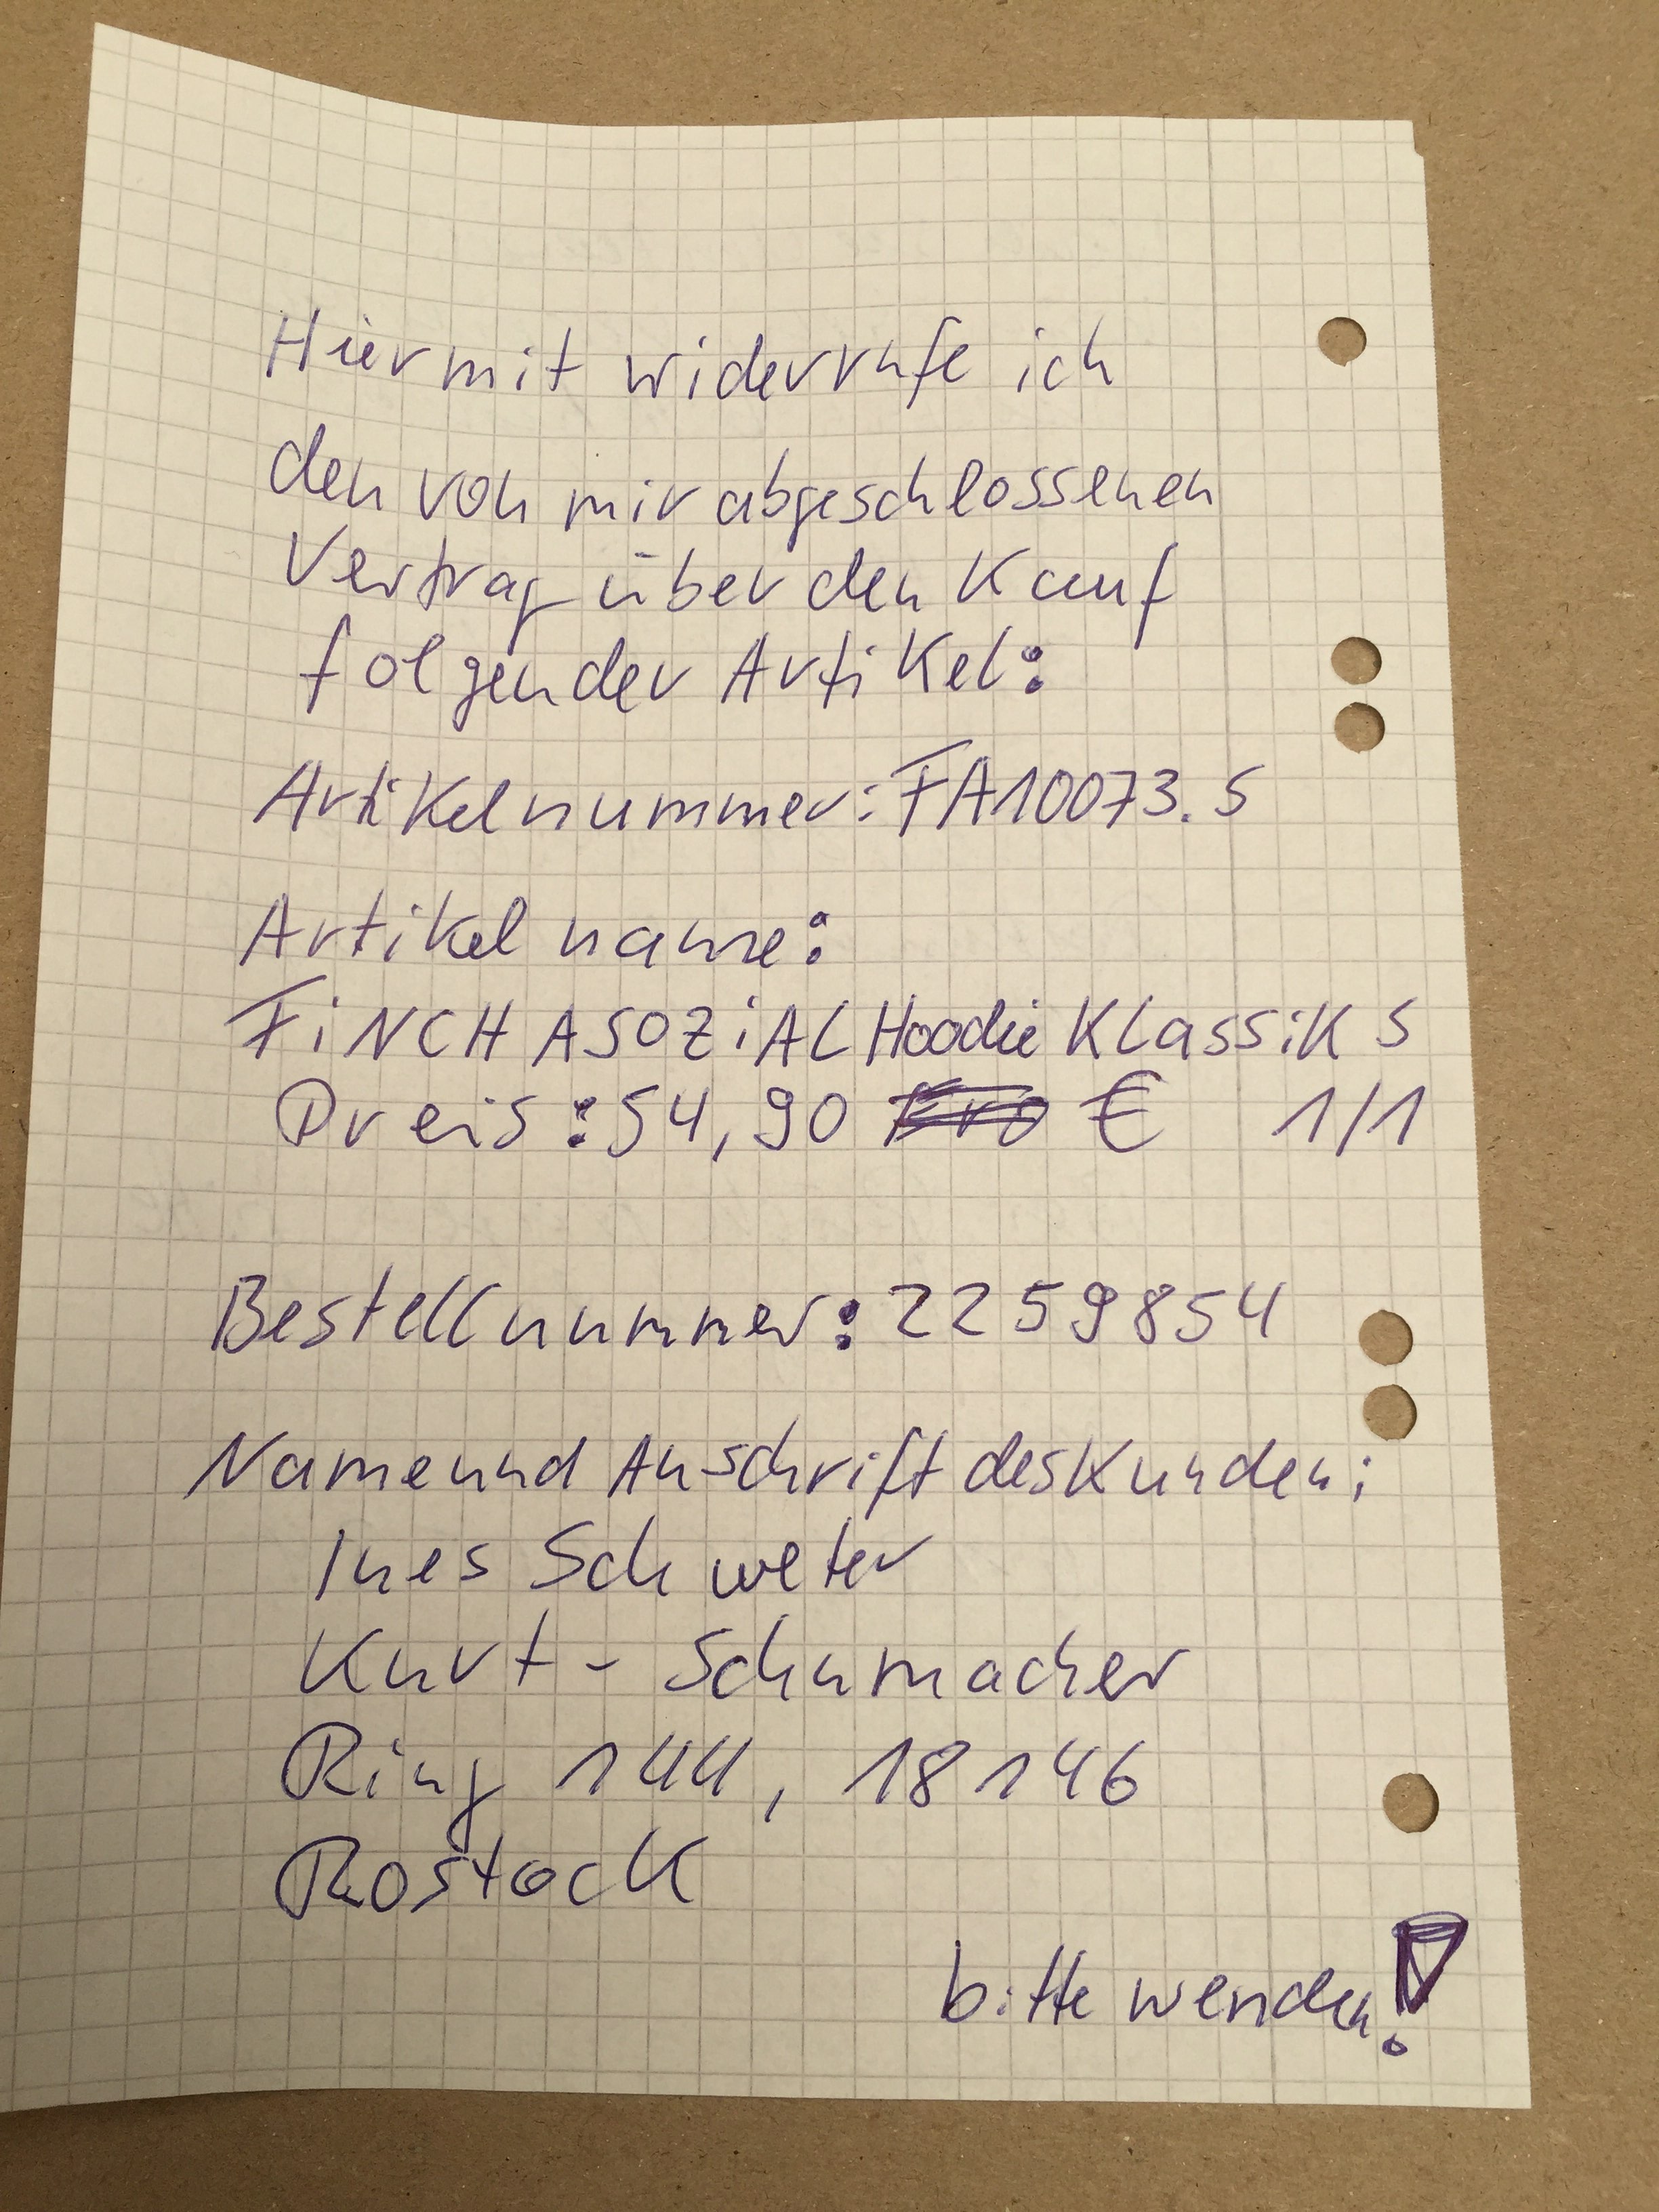 Hiermit widerrufe ich
den von mir abgeschlossenen
Vertrag über den Kauf
folgender Artikel:
Artikelnummer: FA10073.S
Artikelname:
FiNCH ASOZiAL Hoodie Klassik S
Preis: 54,90 € 1/1
Bestellnummer: 2259854
Name und Anschrift des Kunden:
Ines Schweter
Kurt-Schumacher
Ring 144, 18146
Rostock
bitte wenden!